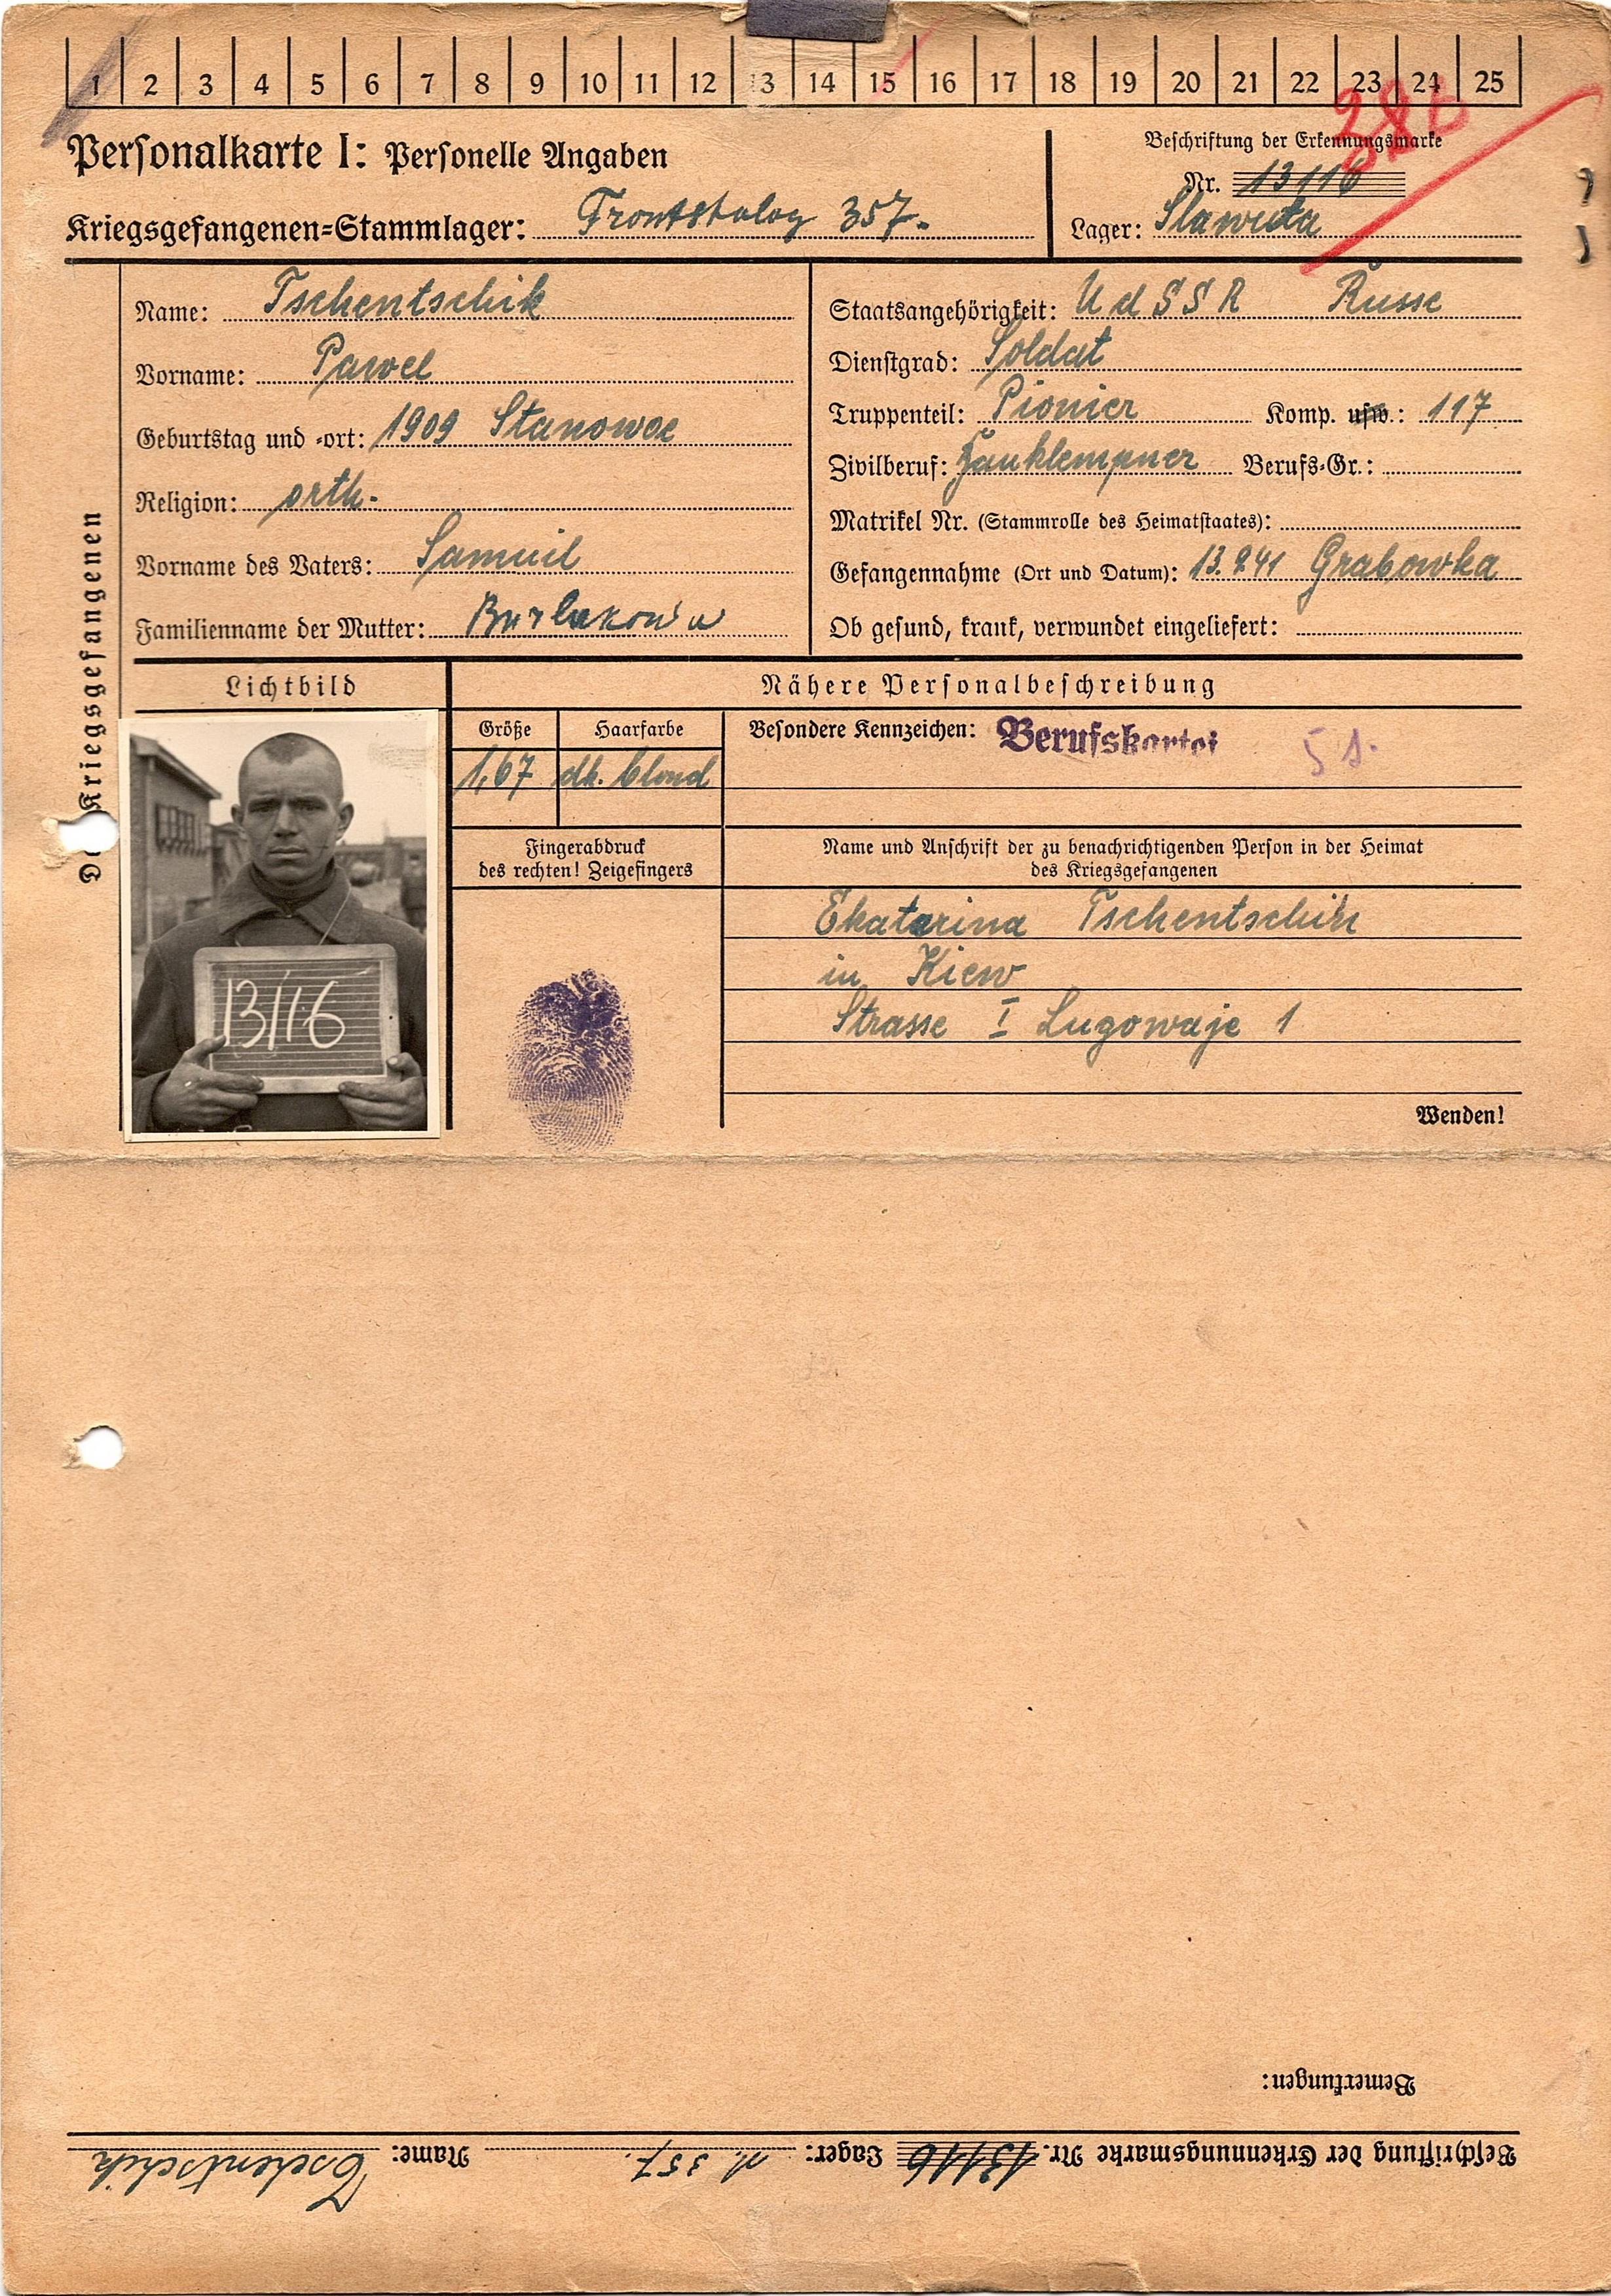 1 2 3 4 5 6 7 8 9 10 11 12 13 14 15 16 17 18 19 20 21 22 23 24 25
Personalkarte I: Personelle Angaben
Beschriftung der Erkennungsmarke
Nr. 13116
Kriegsgefangenen-Stammlager: Frontstalag 357.
Lager: Slawuta
Des Kriegsgefangenen
Name: Tschentschik
Vorname: Pawel
Geburtstag und -ort: 1909 Stanowoe
Religion: orth.
Vorname des Vaters: Samuil
Familienname der Mutter:
Staatsangehörigkeit: UdSSR Russe
Dienstgrad: Soldat
Truppenteil: Pionier Komp. usw.: 117
Zivilberuf: Bauklempner Berufs-Gr.:
Matrikel Nr. (Stammrolle des Heimatstaates):
Gefangennahme (Ort und Datum): 13.9.41 Grabowka
Ob gesund, krank, verwundet eingeliefert:
Lichtbild
13116
Nähere Personalbeschreibung
Größe Haarfarbe
1,67 dk. blond
Besondere Kennzeichen: Berufskartei
Fingerabdruck
des rechten! Zeigefingers
Name und Anschrift der zu benachrichtigenden Person in der Heimat
des Kriegsgefangenen
Ekatarina Tschentschik
in Kiew
Strasse I Lugowaje 1
Wenden!
Bemerkungen:
Beschriftung der Erkennungsmarke Nr. 13116 Lager: 357. Name: Tschentschik